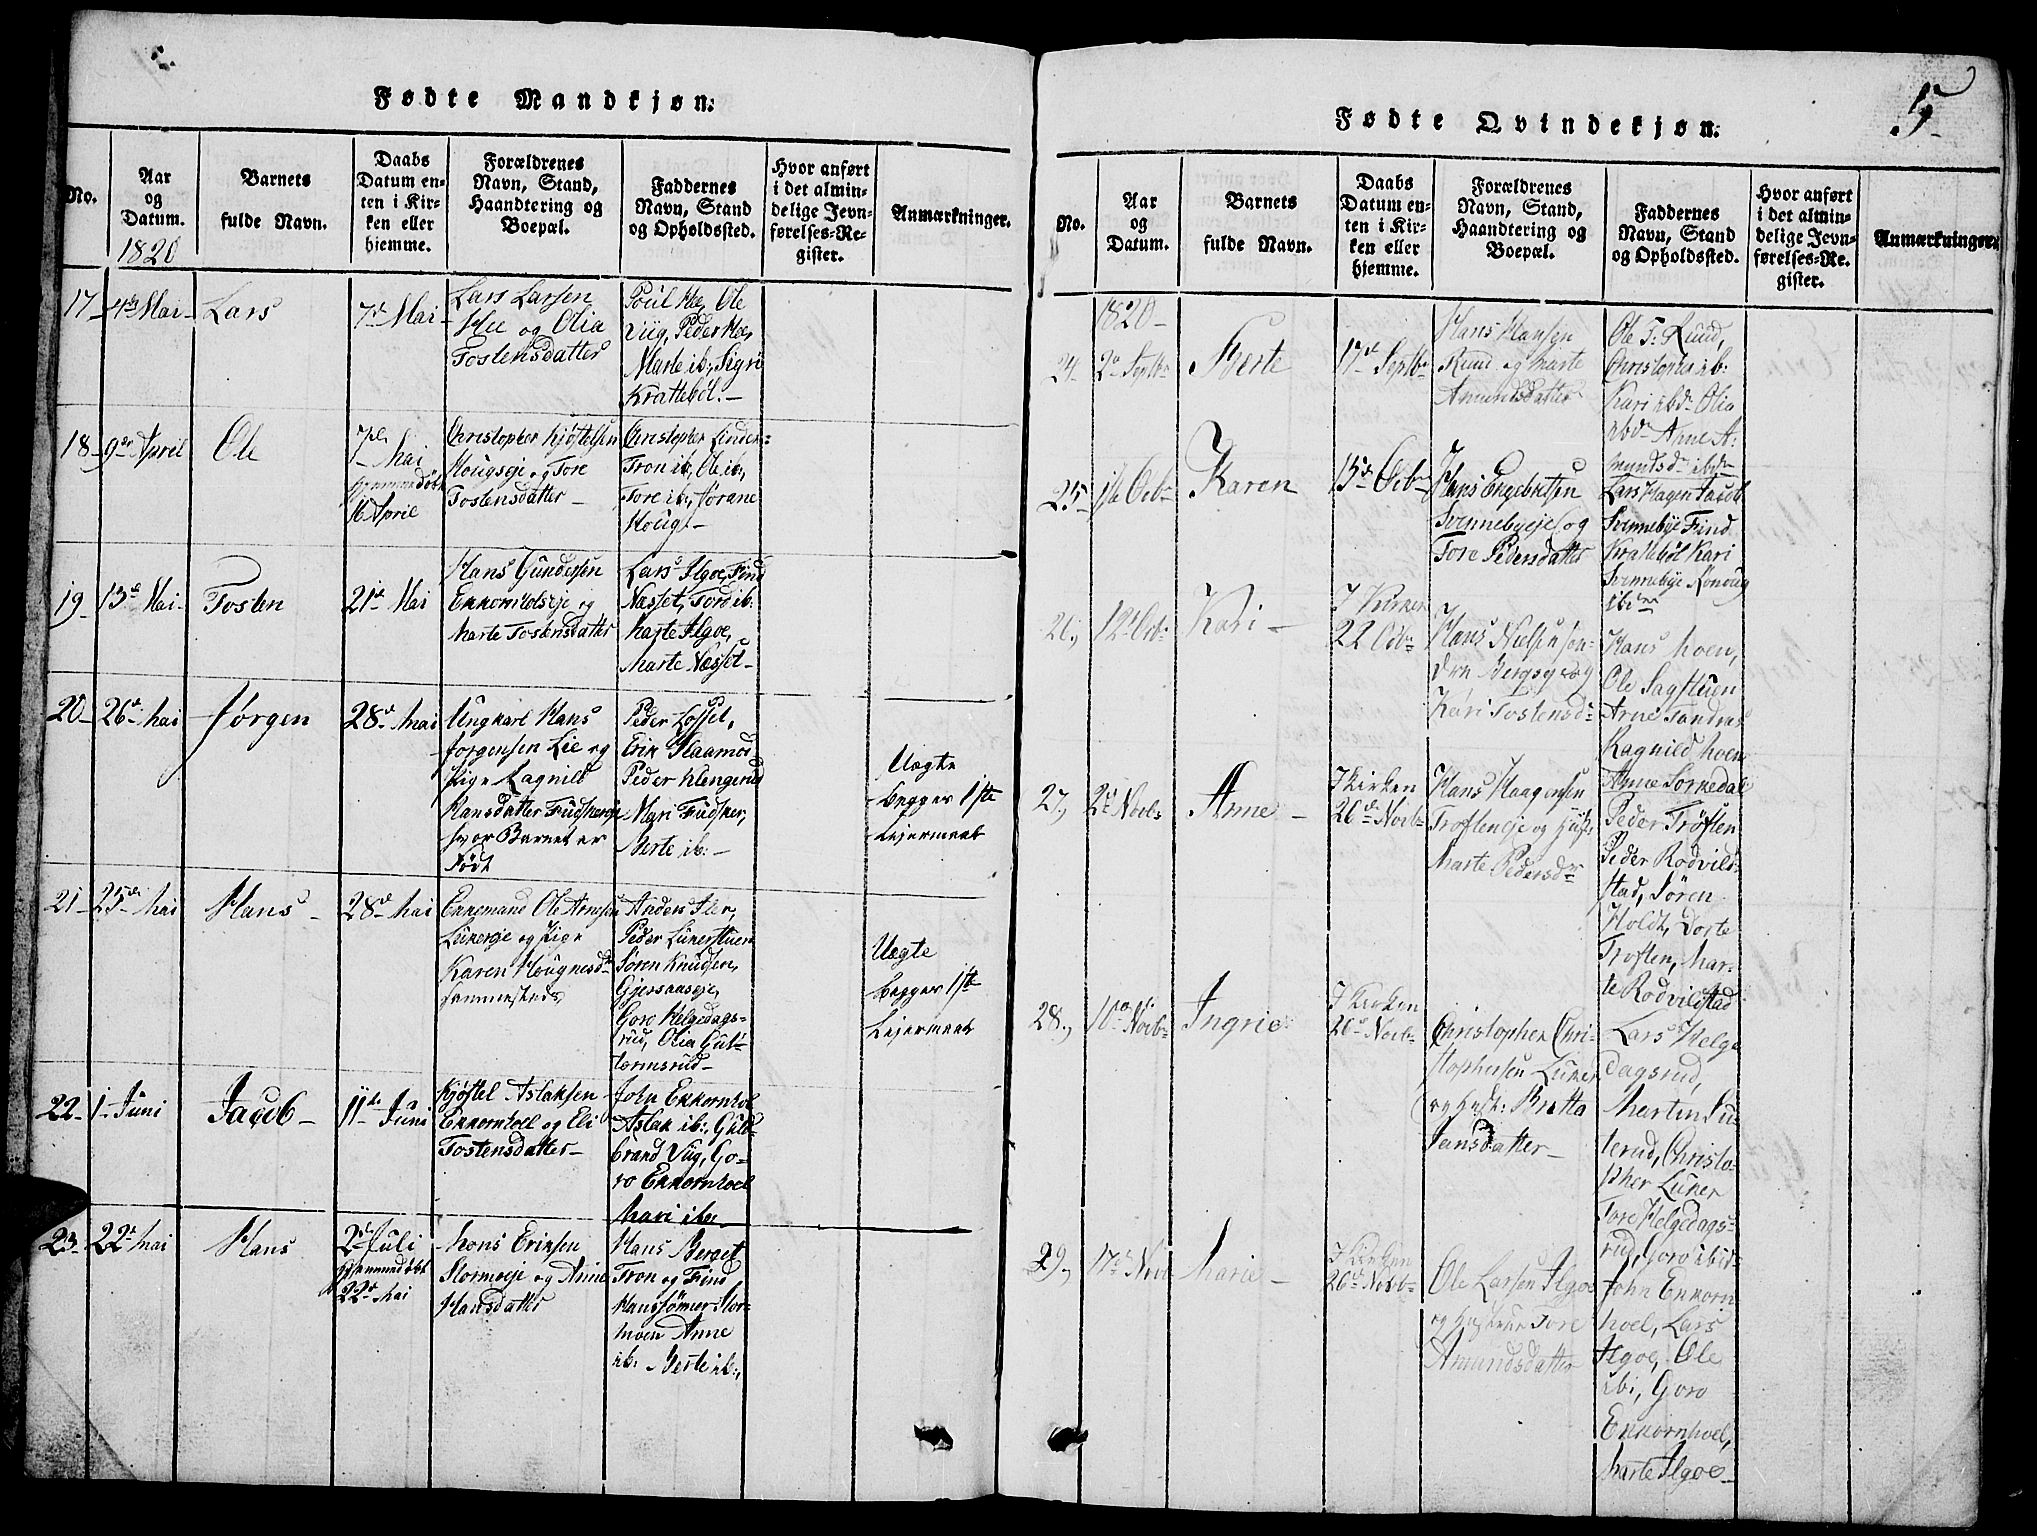 Fødte Mandkjøn.
No.
Aar
og
Datum.
1820
Barnets
fulde Navn.
Daabs
Datum en-
ten i Kir-
ken eller
hjemme.
Forældrenes
Navn, Stand,
Haandtering og
Boepæl.
Faddernes
Navn, Stand
og Opholdssted.
Hvor anført
i det almin-
delige Jevn-
førelses-Re-
gister.
Anmærkninger.
17
4de Mai
Lars
7de Mai
Lars Larsen
Hee og Olia
Tostensdatter
Poul Hee, Ole
Viig, Peder Hee,
Marte ib:, Sigri
Krattebøl.
18
9de April
Ole
7de
Mai
Hjemmedøbt
16 April
Christopher Kjøstelsen
Hougseje og Tore
Tostensdatter
Christopher Linder
Tron ib, Ole ib:,
Tore ib:, Jørane
Houg.
19
13de Mai
Tosten
21de Mai
Hans Gundersen
Ekkornholseje og
Marte Tostensdatter
Lars Ilgoe, Find
Næsset, Tord ib:
Marte Ilgoe,
Marte Næsset
20
26de Mai
Jørgen
28de Mai
Ungkarl Hans
Jørgensen Lie og
Pige Ragnild
Hansdatter
hvor Barnet er
Født
Peder
Erik
Peder Klengerud
Mari
Berte ib:
Uægte
begges 1ste
Leiermaal
21
25de Mai
Hans
28de Mai
Enkemand Ole Arnesen
Lunkerseje og Pige
Karen Hougnesdr
sammesteds
Anders
Peder Lunkerstuen
Søren Knudsen,
Gjersaaseje,
Goro Helgedags-
rud, Olia Gut-
tormsrud
Uægte
begges 1ste
Leiermaal
22
1 Juni
Jacob
11de Juni
Kjøstel Aslaksen
Ekkornhoel og Eli
Tostensdatter
John Ekkornhoel
Aslak ib:, Guld-
brand Viig, Go-
ro Ekkornhoel
Mari ib:
23
22de Mai
Hans
2de Juli
Hjemmedøbt
22de Mai
Mons Eriksen
Stormoeje og Anne
Hansdatter
Hans Berget
Tron og Find
Hanssønner Stor-
moen Anne
ib: Berte ib:,
Fødte Qvindekjøn.
5
No.
Aar
og
Datum.
Barnets
fulde Navn.
Daabs
Datum en-
ten i Kir-
ken eller
hjemme.
Forældrenes
Navn, Stand,
Haandtering og
Boepæl.
Faddernes
Navn, Stand
og Opholdssted.
Hvor anført
i det almin-
delige Jevn-
førelses-Re-
gister.
Anmærkninger.
1820
24
2de Septbr
Berte
17de Septbr
Hans Hansen
Ruud og Marte
Amundsdatter
Ole T: Ruud,
Christopher ib:
Kari ibd. Olia
ibd. Anne A:
mundsdr ibdm
25
1ste Octbr
Karen
15de Octbr
Hans Engebretsen
Svennebyeje og
Tore Pedersdatter
Lars Hagen Jacob
Svennebye Find
Krattebøl Kari
Svennebye Rønnoug
ibidem
26
12te Octbr
Kari
I Kirken
22 Octbr
Hans Nielsen Søn-
dre Bergseje og
Kari Tostensdr
Hans Moen,
Ole Sagstuen
Arne
Ragnild Moen
Anne Sørkedal
27
2de Novbr
Anne
I Kirken
26de Novbr
Hans Haagensen
Trøfteneje og
Marte Pedersdr
Peder Trøften
Peder Rodvild-
stad, Søren
Holdt, Dorte
Trøften, Mar-
te Rodvildstad
28
10de Novbr
Ingrie
I Kirken
26de Novbr
Christopher Chri-
stophersen Lunker
og Hustr: Britta
Jansdatter
Lars Helge
dagsrud,
Martin
terud, Christo-
pher Lunker
Tore Helgedags-
rud, Goro ibid:
29
17de Novbr
Marie
I Kirken
26de Novbr
Ole Larsen Ilgoe
og Hustrue Tore
Amundsdatter
John Ekkorn
hoel, Lars
Ilgoe, Ole
ibi, Goro
Ekkornhoel,
Marte Ilgoe